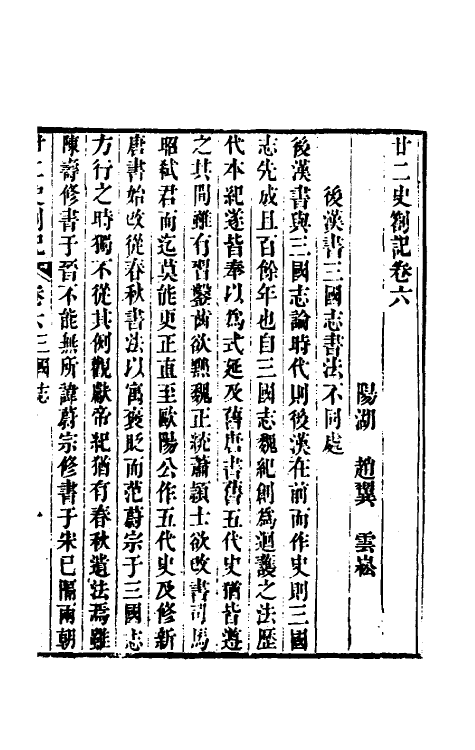 廿二史劄記卷六
陽湖　趙翼　雲崧
後漢書三國志書法不同處
後漢書與三國志論時代則後漢在前而作史則三國
志先成且百餘年也自三國志魏紀創為迴護之法歷
代本紀遂皆奉以為式延及舊唐書舊五代史猶皆遵
之其間雖有習鑿齒欲黜魏正統蕭穎士欲改書司馬
昭弒君而迄莫能更正直至歐陽公作五代史及修新
唐書始改從春秋書法以寓褒貶而范蔚宗于三國志
方行之時獨不從其例觀獻帝紀猶有春秋遺法焉雖
陳壽修書于晉不能無所諱蔚宗修書于宋已隔兩朝
廿二史劄記　卷六三國志